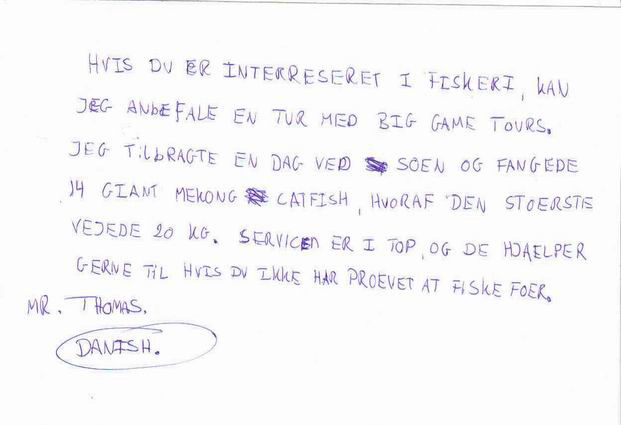 HVIS DU ER INTERRESERET I FISKERI, KAN
JEG ANBEFALE EN TUR MED BIG GAME TOURS.
JEG TILBRAGTE EN DAG VED SOEN OG FANGEDE
14 GIANT MEKONG CATFISH, HVORAF DEN STOERSTE
VEJEDE 20 KG. SERVICEN ER I TOP, OG DE HJAELPER
GERNE TIL HVIS DU IKKE HAR PROEVET AT FISKE FOER.
MR. THOMAS.
DANISH.